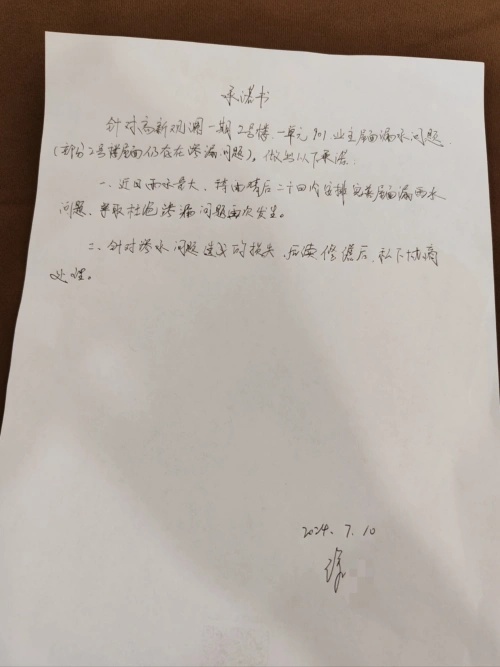 承诺书
针对高新观澜一期2号楼一单元901业主屋面漏水问题
(部分2号楼屋面仍存在渗漏问题),做出以下承诺:
一、近日雨水量大,待雨晴后二十日内安排完善屋面漏雨水
问题,争取杜绝渗漏问题再次发生。
二、针对渗水问题造成的损失,后续修缮后,私下协商
处理。
2024.7.10
徐